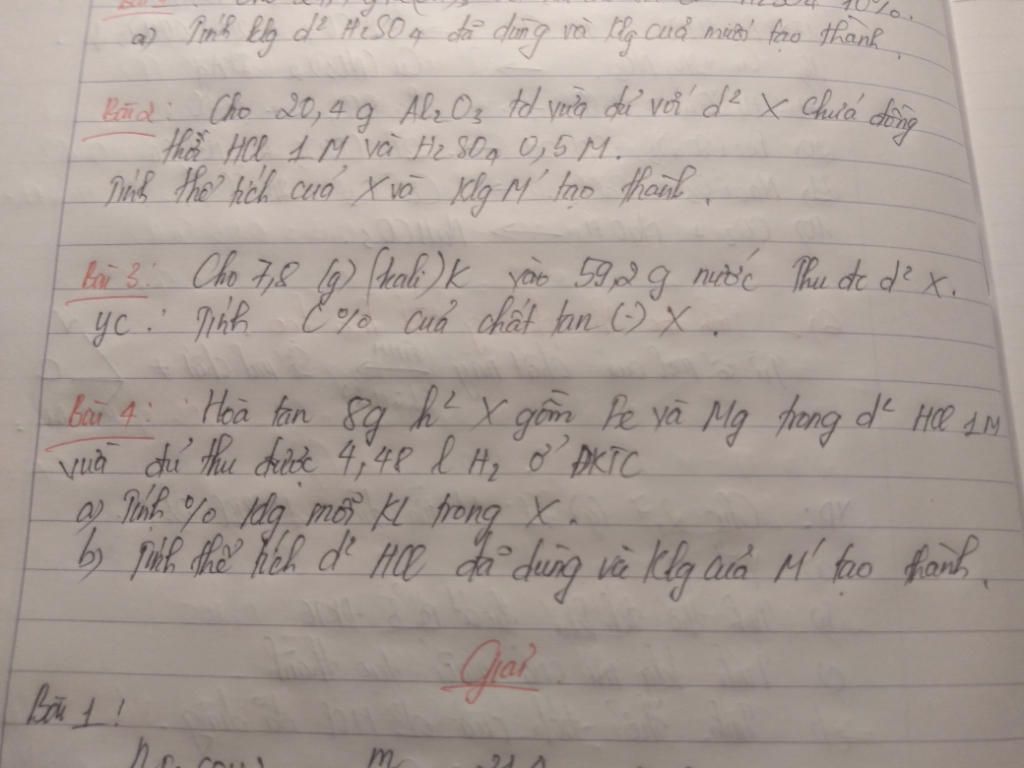 H2SO4 10%.
a) Tính klg d² H2SO4 đã dùng và klg của muối tạo thành.
Bài 2: Cho 20,4 g Al2O3 td vừa đủ với d² X chứa đồng
thời HCl 1M và H2SO4 0,5M.
Tính thể tích của X và klg M' tạo thành.
Bài 3: Cho 7,8 (g) (kali) K vào 59,2 g nước thu đc d² X.
yc: Tính C% của chất tan (-) X.
Bài 4: Hoà tan 8g h² X gồm Fe và Mg trong d² HCl 1M
vừa đủ thu được 4,48 l H2 ở ĐKTC
a) Tính % klg mỗi Kl trong X.
b) Tính thể tích d² HCl đã dùng và klg của M' tạo thành.
Giải
Bài 1: